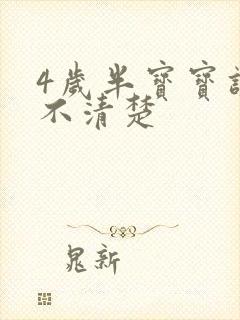 4歲半寶寶說
不清楚
晁新